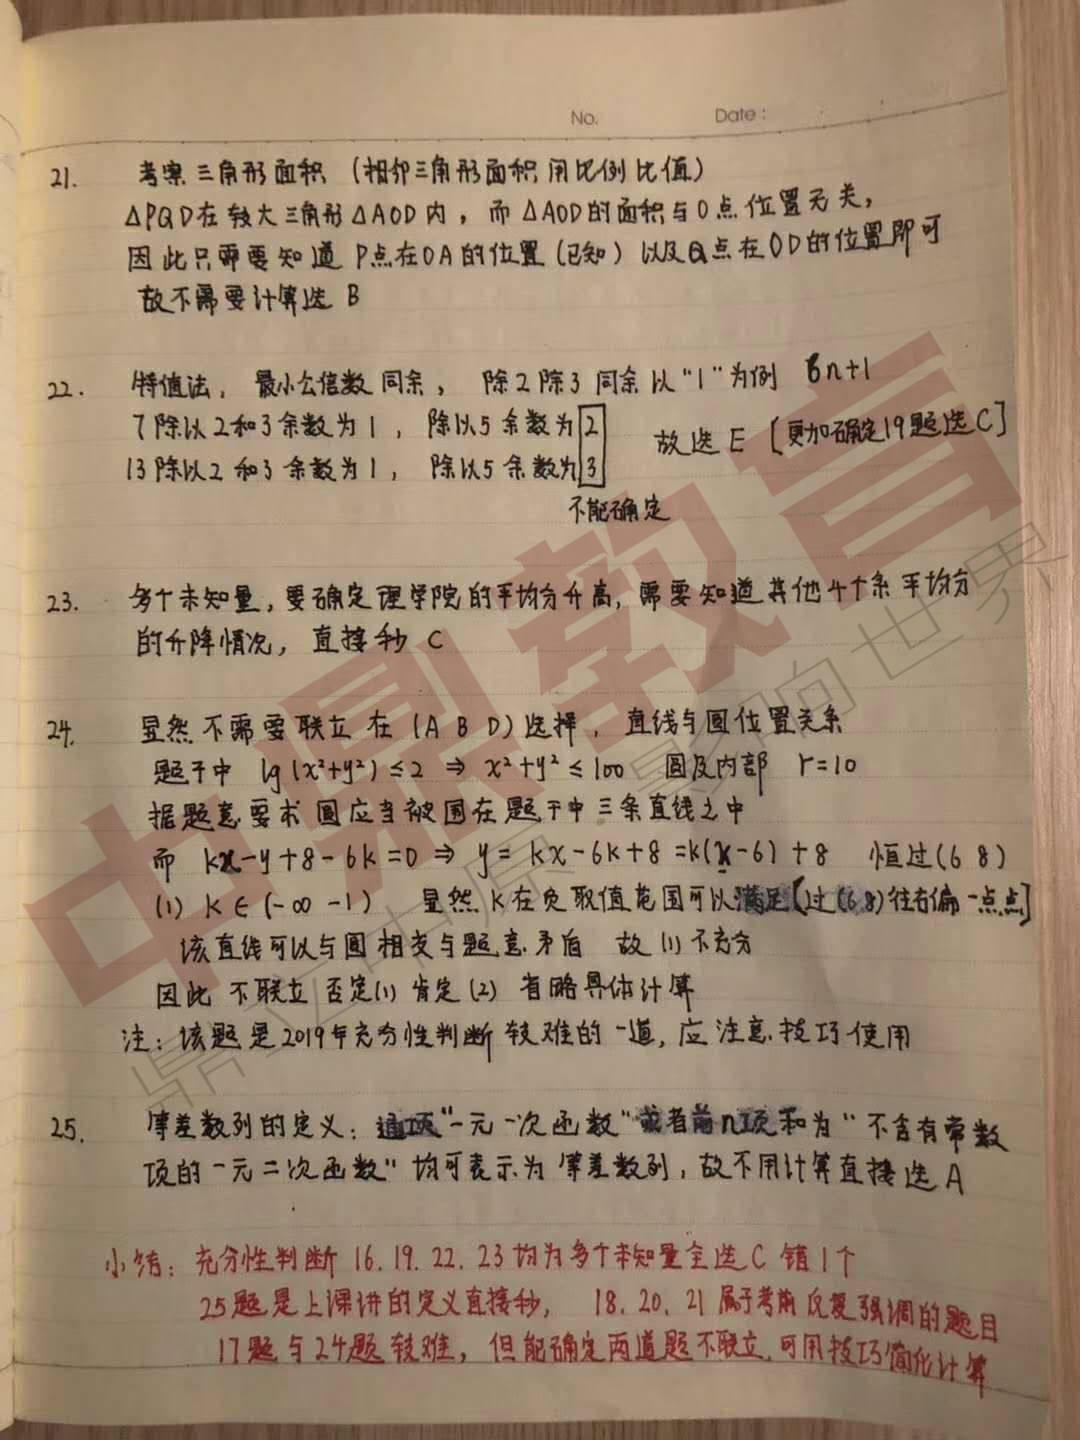 No. Date:
21. 考察三角形面积 (相邻三角形面积用比例比值)
△PQD在较大三角形△AOD内，而△AOD的面积与O点位置无关，
因此只需要知道 P点在OA的位置(已知) 以及Q点在OD的位置即可
故不需要计算选 B
22. 特值法，最小公倍数同余，除2除3同余以"1"为例 6n+1
7除以2和3余数为1，除以5余数为2 故选E [更加确定19题选C]
13除以2和3余数为1，除以5余数为3
不能确定
23. 多个未知量，要确定理学院的平均分升高，需要知道其他4个系平均分
的升降情况，直接秒 C
24. 显然不需要联立在(A B D)选择，直线与圆位置关系
题干中 lg(x²+y²)≤2 ⇒ x²+y²≤100 圆及内部 r=10
据题意要求圆应当被围在题干中三条直线之中
而 kx-y+8-6k=0 ⇒ y=kx-6k+8=k(x-6)+8 恒过(6 8)
(1) k∈(-∞ -1) 显然k在负取值范围可以满足[过(6,8)往右偏一点点]
该直线可以与圆相交与题意矛盾 故(1)不充分
因此不联立否定(1)肯定(2) 省略具体计算
注：该题是2019年充分性判断较难的一道，应注意技巧使用
25. 等差数列的定义：通项"一元一次函数"或者前n项和为"不含有常数
项的一元二次函数"均可表示为等差数列，故不用计算直接选A
小结：充分性判断16.19.22.23均为多个未知量全选C 错1个
25题是上课讲的定义直接秒，18.20.21属于考前反复强调的题目
17题与24题较难，但能确定两道题不联立.可用技巧简化计算
中鼎教育
鼎立中原·影响世界